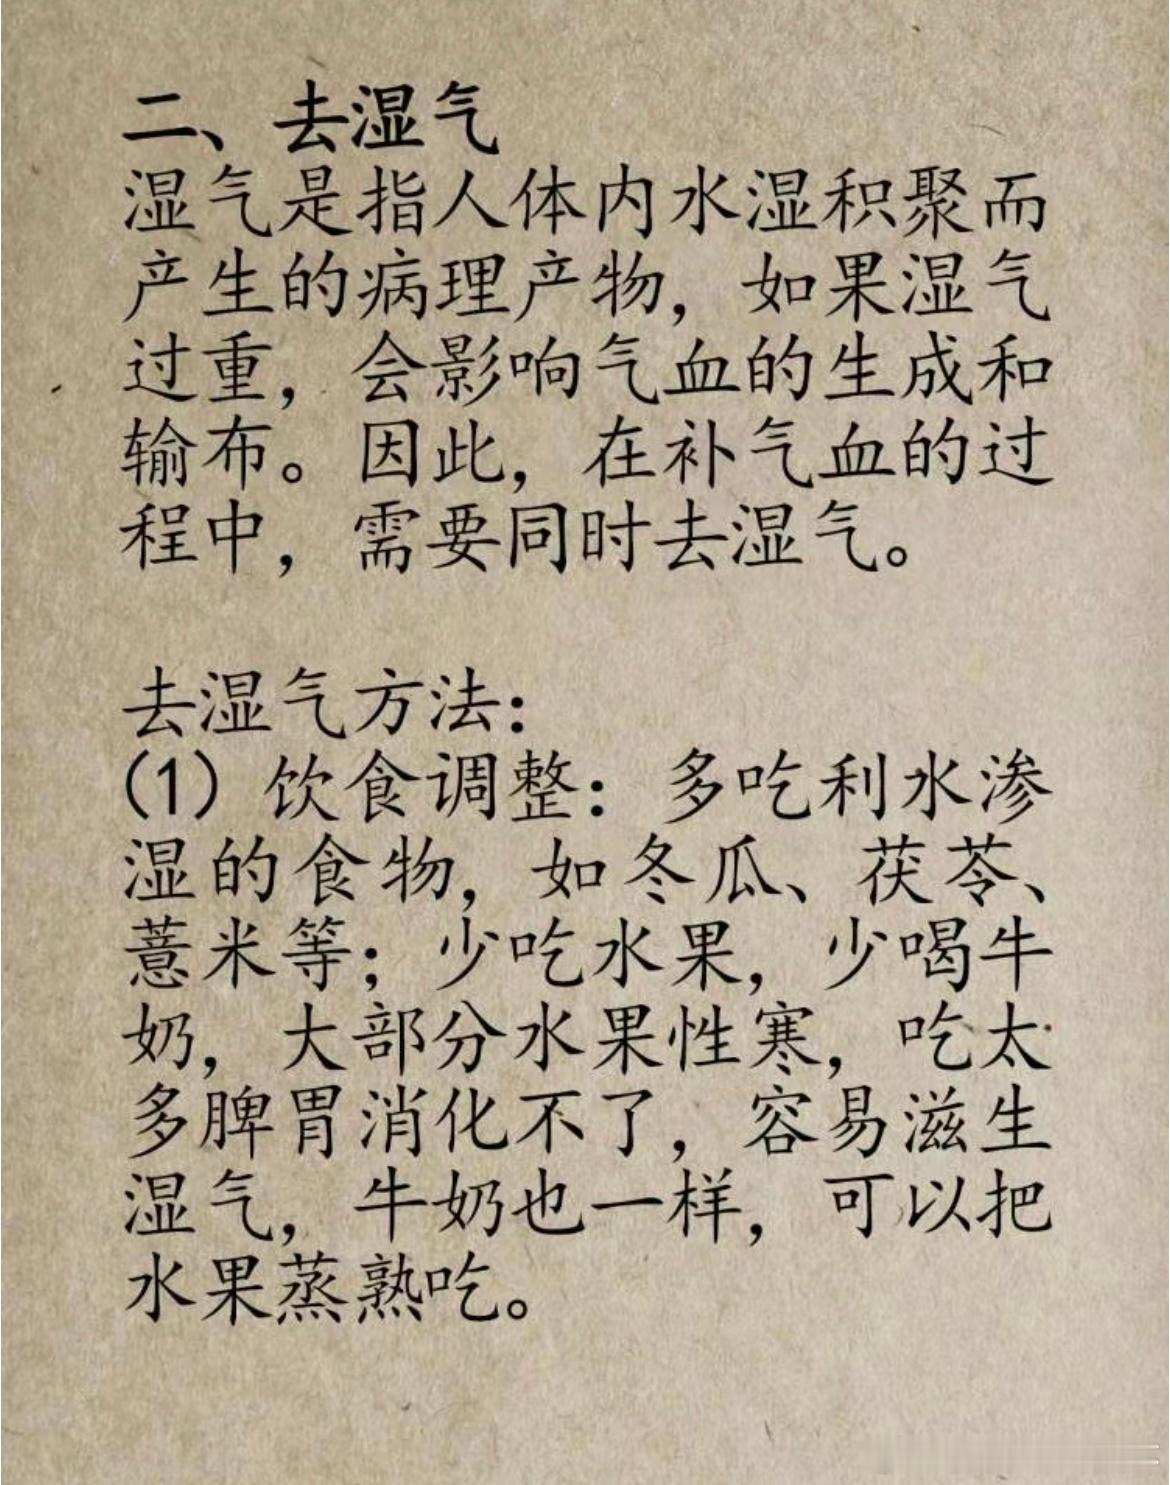 二、去湿气
湿气是指人体内水湿积聚而
产生的病理产物，如果湿气
过重，会影响气血的生成和
输布。因此，在补气血的过
程中，需要同时去湿气。
去湿气方法：
（1）饮食调整：多吃利水渗
湿的食物，如冬瓜、茯苓、
薏米等；少吃水果，少喝牛
奶，大部分水果性寒，吃太
多脾胃消化不了，容易滋生
湿气，牛奶也一样，可以把
水果蒸熟吃。